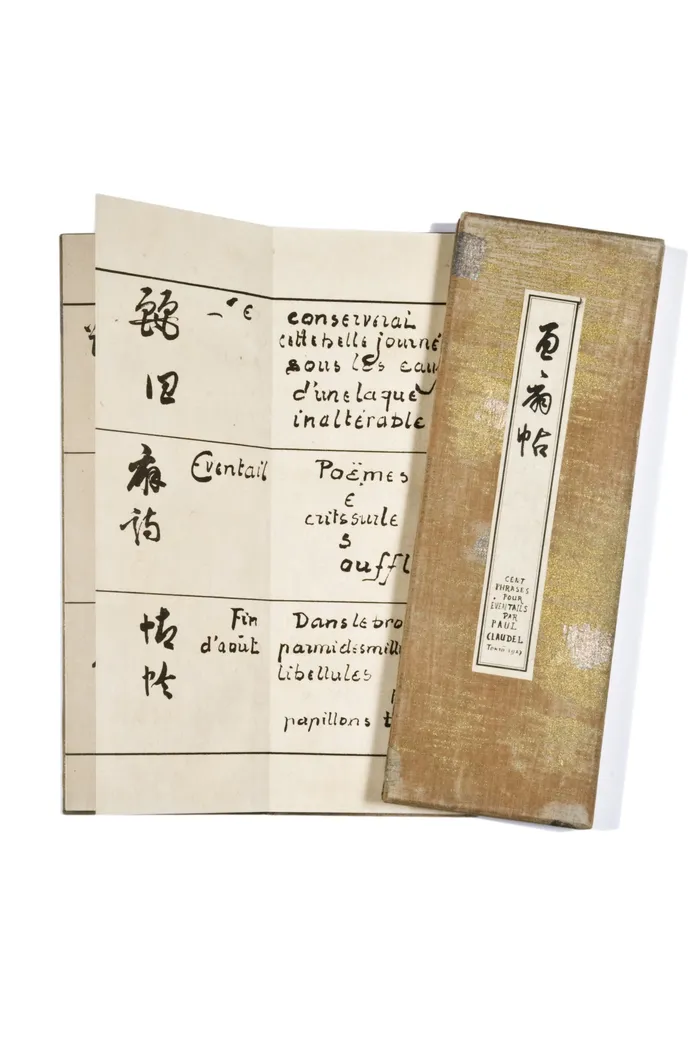 conserverai
cette belle journé
sous les eau
d'une laque
inaltérable
扇
詩
Eventail
Poëmes
E
crits sur le
S
ouffl
蜻
蛉
Fin
d'août
Dans le bro
parmi des mill
libellules
papillons
百扇帖
CENT
PHRASES
POUR
EVENTAILS
PAR
PAUL
CLAUDEL